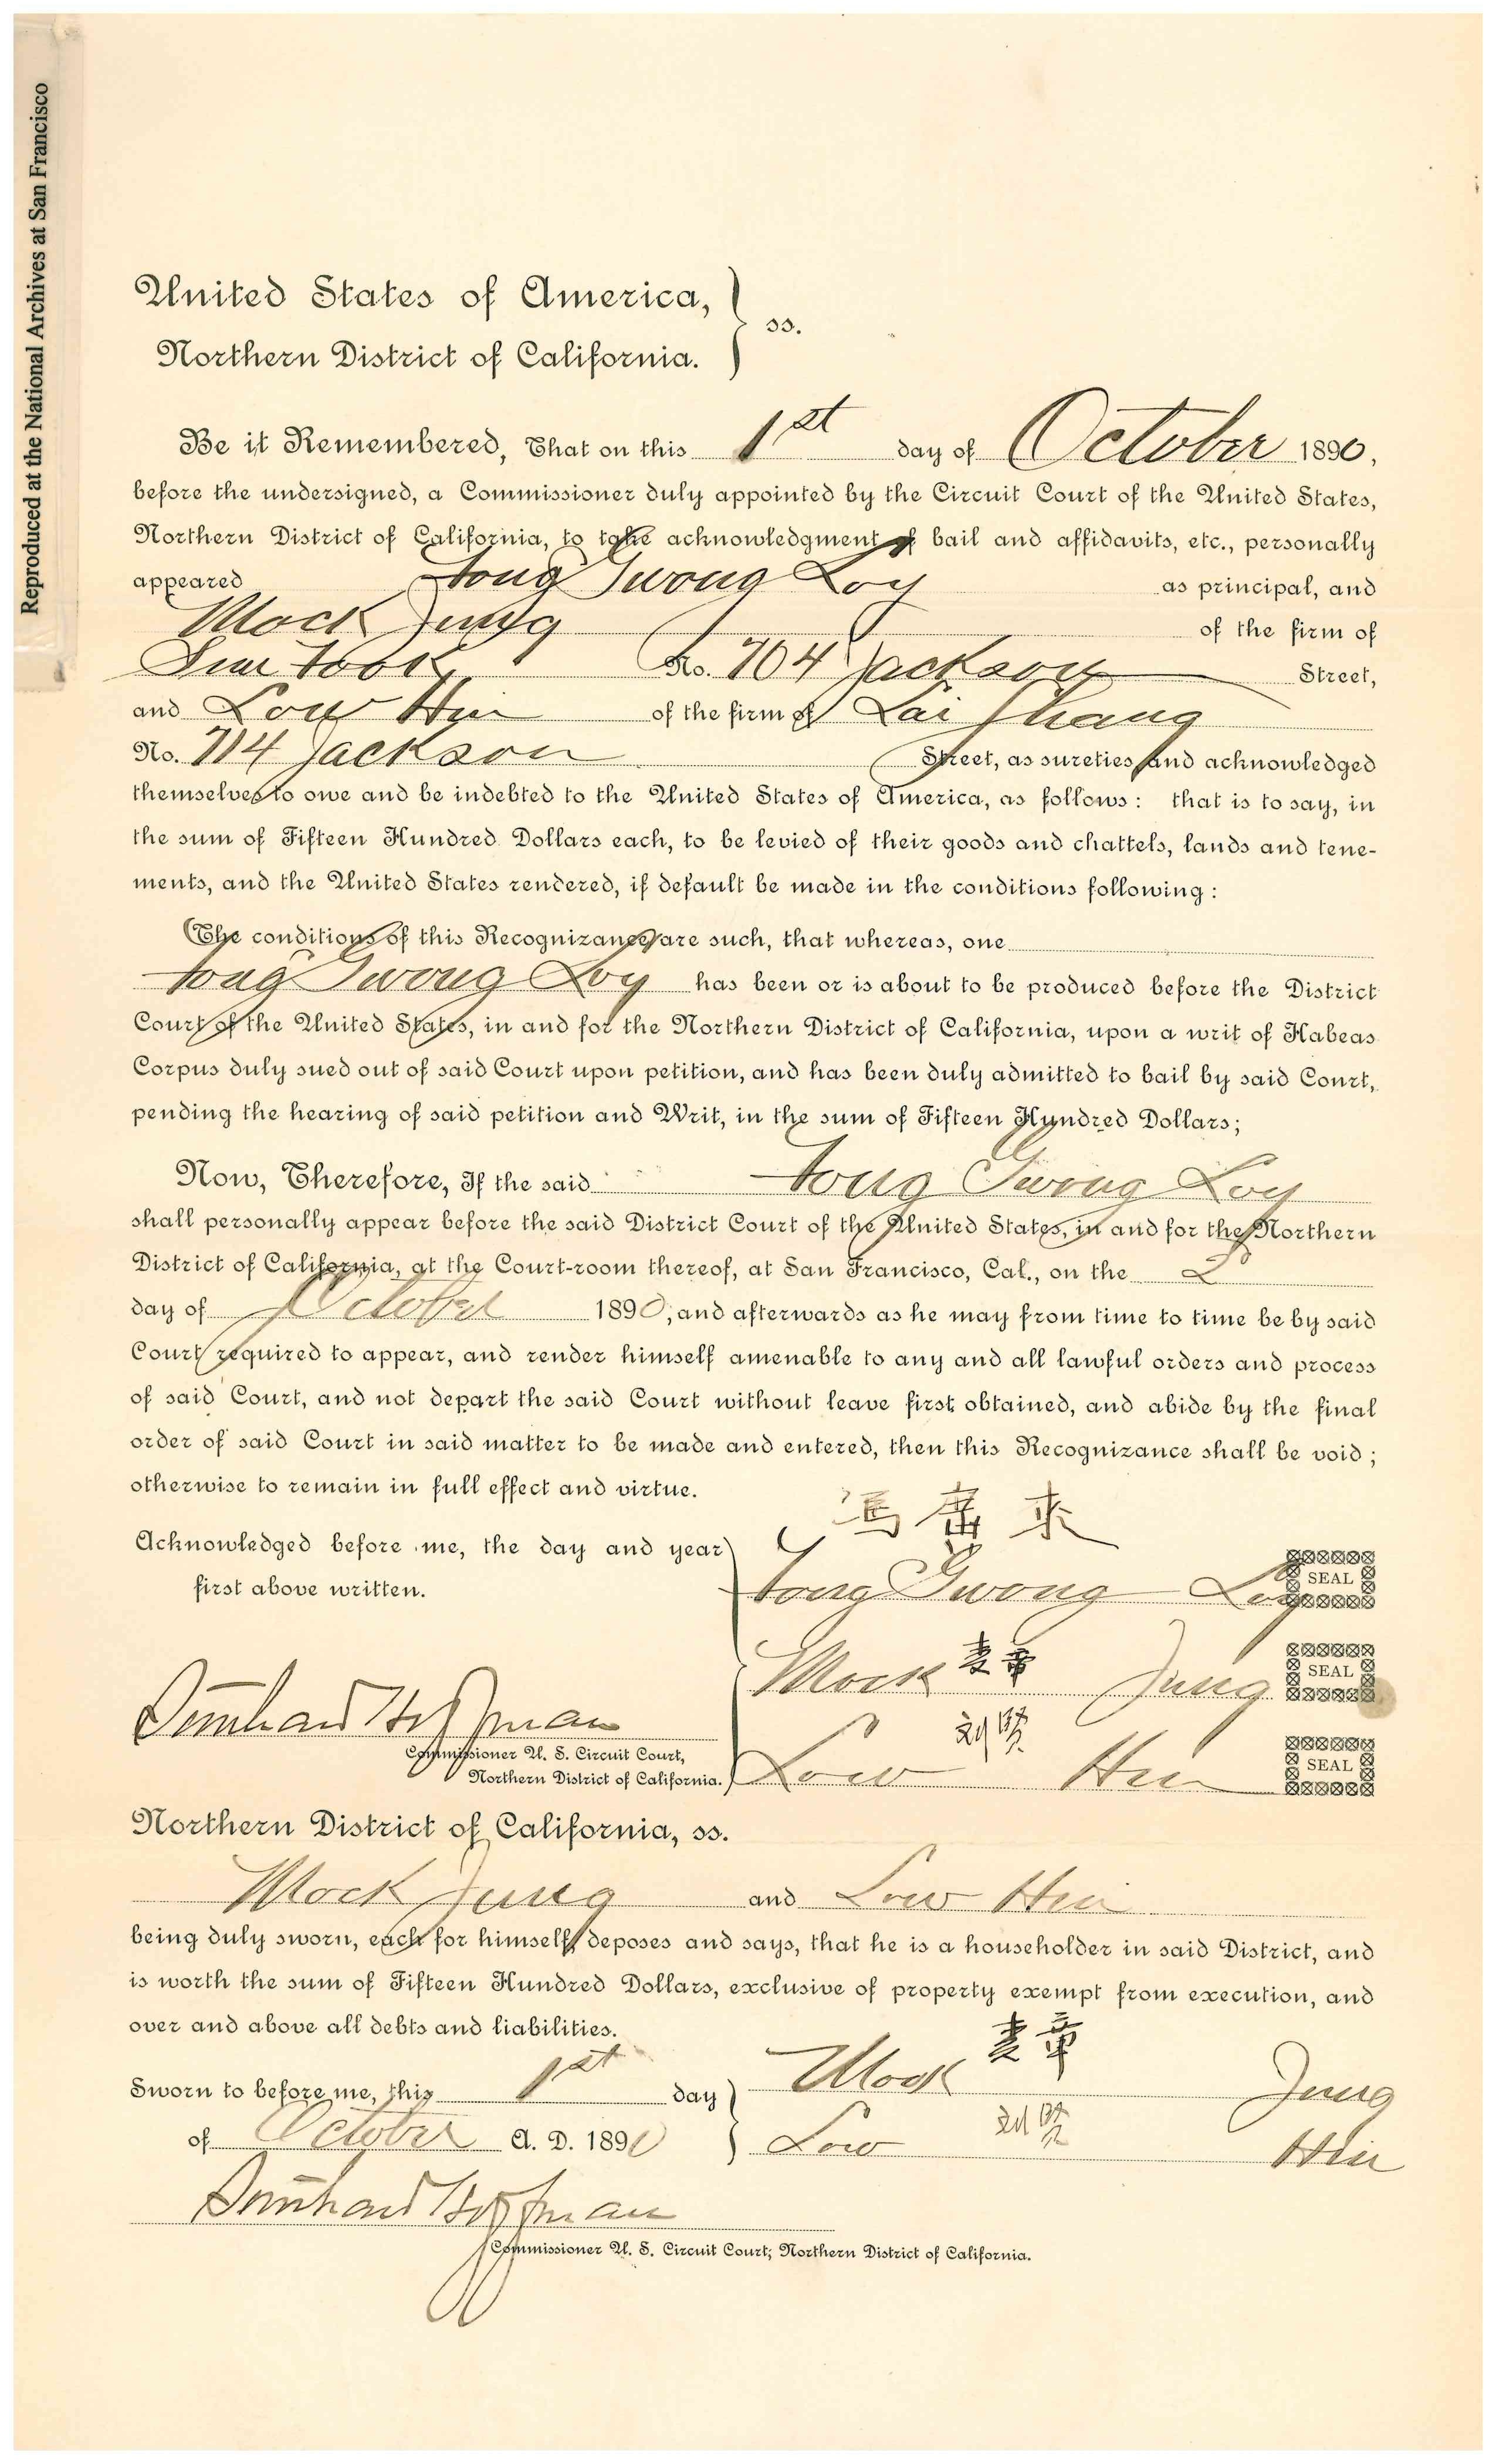 Reproduced at the National Archives at San Francisco
United States of America,
Northern District of California.
ss.
Be it Remembered, That on this 1st day of October 1890,
before the undersigned, a Commissioner duly appointed by the Circuit Court of the United States,
Northern District of California, to take acknowledgment of bail and affidavits, etc., personally
appeared Fong Gwong Loy as principal, and
Mock Jung of the firm of
No. 704 Jackson Street,
and Low Hin of the firm of Lai Shang
No. 714 Jackson Street, as sureties, and acknowledged
themselves to owe and be indebted to the United States of America, as follows: that is to say, in
the sum of Fifteen Hundred Dollars each, to be levied of their goods and chattels, lands and tene-
ments, and the United States rendered, if default be made in the conditions following:
The conditions of this Recognizance are such, that whereas, one
Fong Gwong Loy has been or is about to be produced before the District
Court of the United States, in and for the Northern District of California, upon a writ of Habeas
Corpus duly sued out of said Court upon petition, and has been duly admitted to bail by said Court,
pending the hearing of said petition and Writ, in the sum of Fifteen Hundred Dollars;
Now, Therefore, If the said Fong Gwong Loy
shall personally appear before the said District Court of the United States, in and for the Northern
District of California, at the Court-room thereof, at San Francisco, Cal., on the 2
day of October 1890, and afterwards as he may from time to time be by said
Court required to appear, and render himself amenable to any and all lawful orders and process
of said Court, and not depart the said Court without leave first obtained, and abide by the final
order of said Court in said matter to be made and entered, then this Recognizance shall be void;
otherwise to remain in full effect and virtue.
Acknowledged before me, the day and year
first above written.
Fong Gwong Loy SEAL
Mock Jung SEAL
Low Hin SEAL
Commissioner U. S. Circuit Court,
Northern District of California.
Northern District of California, ss.
Mock Jung and Low Hin
being duly sworn, each for himself, deposes and says, that he is a householder in said District, and
is worth the sum of Fifteen Hundred Dollars, exclusive of property exempt from execution, and
over and above all debts and liabilities.
Sworn to before me, this 1st day
of October A. D. 1890
Mock 麦章 Jung
Low Hin
Commissioner U. S. Circuit Court, Northern District of California.